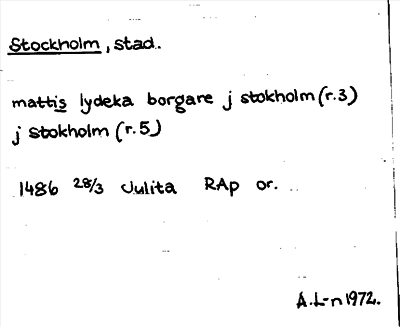 Stockholm, stad.
mattis lydeka borgare j stokholm (r.3)
j stokholm (r.5)
1486 28/3 Julita RAp or.
A.L-n 1972.